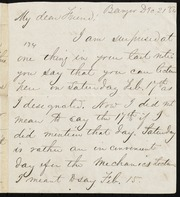 Bangor Dec 21 52
My dear Friend,
I am surprised at
one thing in your last viz
you say that you can come
here on Saturday Feb. 17th as
I designated. Now I did not
mean to say the 17th if I
did mention that day. Saturday
is rather an inconvenient
day of in the Mechanics
I meant to say Feb. 15.